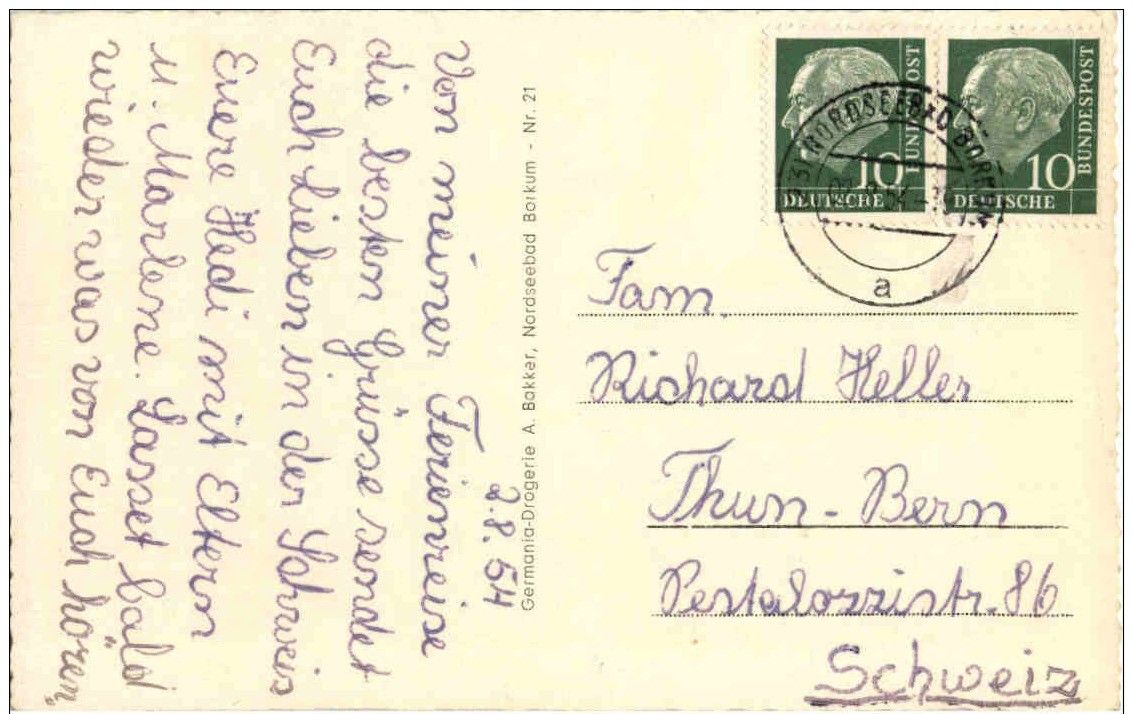 2.8.54
Von meiner Ferienreise
die besten Grüsse sendet
Euch Lieben in der Schweiz
Euere Hedi mit Eltern
u. Marlene. Lasset bald
wieder was von Euch hören,
Germania-Drogerie A. Bakker, Nordseebad Borkum - Nr. 21
BUNDESPOST
10
DEUTSCHE
BUNDESPOST
10
DEUTSCHE
NORDSEEBAD BORKUM
a
Fam.
Richard Heller
Thun - Bern
Pestalozzistr. 86
Schweiz